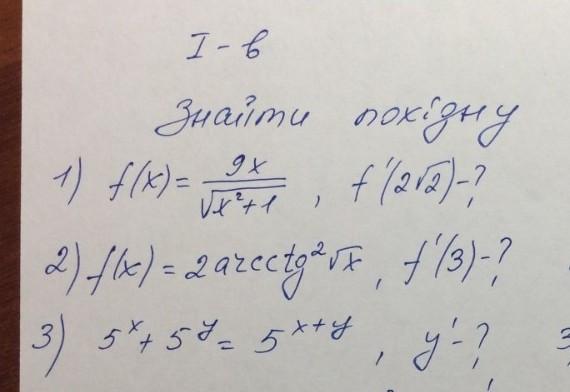 I - в
Знайти похідну
1) f(x) = 9x / √(x²+1) , f'(2√2) - ?
2) f(x) = 2arcctg²√x , f'(3) - ?
3) 5ˣ + 5ʸ = 5ˣ⁺ʸ , y' - ?